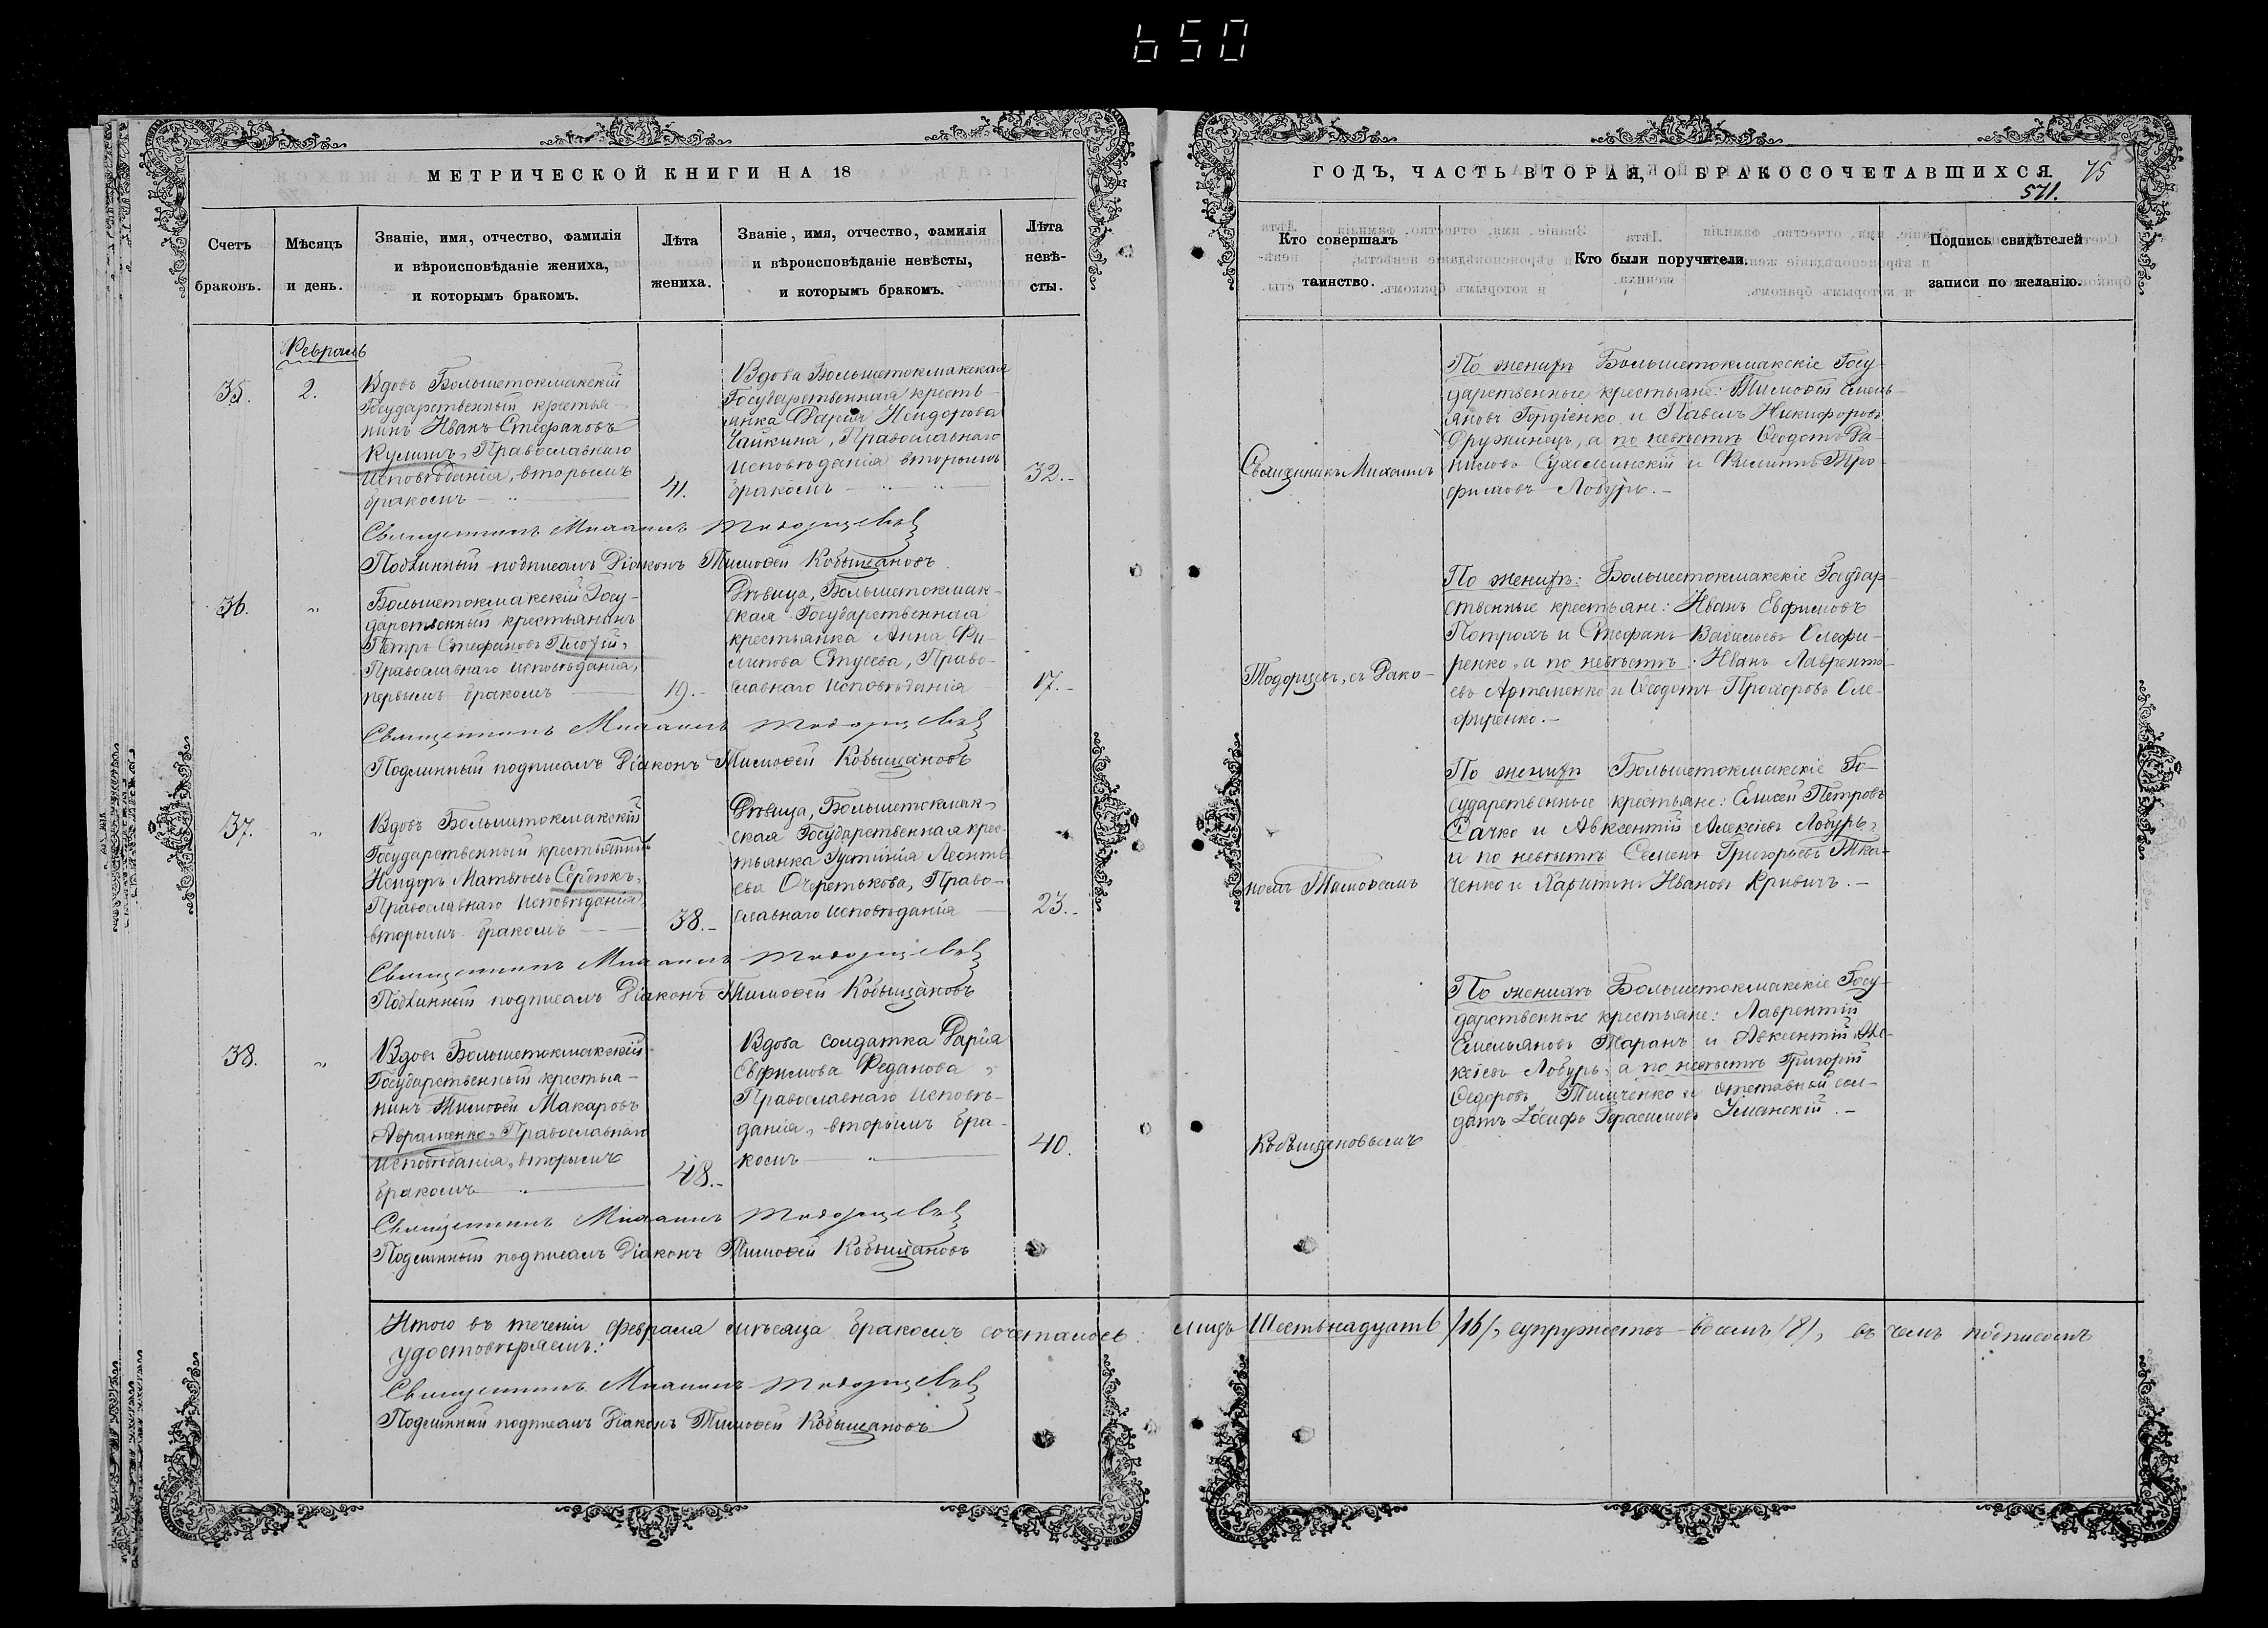 650
МЕТРИЧЕСКОЙ КНИГИ НА 18
Счетъ
браковъ.
Мѣсяцъ
и день.
Званіе, имя, отчество, фамилія
и вѣроисповѣданіе жениха,
и которымъ бракомъ.
Лѣта
жениха.
Званіе, имя, отчество, фамилія
и вѣроисповѣданіе невѣсты,
и которымъ бракомъ.
Лѣта
невѣ-
сты.
Февраль
35.
2.
Вдовъ Большетокмакскій
Государственный крестья-
нинъ Иванъ Стефановъ
Кулишъ, Православнаго
исповѣданія, вторымъ
бракомъ
41.
Вдова Большетокмакская
Государственная кресть-
янка Дарія Исидорова
Чайкина, Православнаго
исповѣданія вторымъ
бракомъ
32.-
Священникъ Михаилъ Тодорцевъ
Подлинный подписалъ Діаконъ Тимоѳей Кобыщановъ
36.
"
Большетокмакскій Госу-
дарственный крестьянинъ
Петръ Стефановъ
Православнаго исповѣданія,
первымъ бракомъ
19.-
Дѣвица, Большетокмак-
ская Государственная
крестьянка Анна Фи-
липова Стусева, Право-
славнаго исповѣданія
17.-
Священникъ Михаилъ Тодорцевъ
Подлинный подписалъ Діаконъ Тимоѳей Кобыщановъ
37.
"
Вдовъ Большетокмакскій
Государственный крестьянинъ
Исидоръ Матвѣевъ Сердюкъ,
Православнаго исповѣданія,
вторымъ бракомъ
38.-
Дѣвица, Большетокмак-
ская Государственная крес-
тьянка Іустинія Леонть-
ева Очеретькова, Право-
славнаго исповѣданія
23.-
Священникъ Михаилъ Тодорцевъ
Подлинный подписалъ Діаконъ Тимоѳей Кобыщановъ
38.
"
Вдовъ Большетокмакскій
Государственный крестья-
нинъ Тимоѳей Макаровъ
Авраменко, Православнаго
исповѣданія, вторымъ
бракомъ
48.-
Вдова солдатка Дарія
Евфимова Феданова,
Православнаго исповѣ-
данія, вторымъ бра-
комъ
40.
Священникъ Михаилъ Тодорцевъ
Подлинный подписалъ Діаконъ Тимоѳей Кобыщановъ
Итого въ теченіи февраля мѣсяца бракомъ сочеталось:
удостовѣряемъ:
Священникъ Михаилъ Тодорцевъ
Подлинный подписалъ Діаконъ Тимоѳей Кобыщановъ
ГОДЪ, ЧАСТЬ ВТОРАЯ, О БРАКОСОЧЕТАВШИХСЯ.
75
571.
Кто совершалъ
таинство.
Кто были поручители.
Подпись свидѣтелей
записи по желанію.
Священникъ Михаилъ
Тодорцевъ, съ Діако-
номъ Тимоѳеемъ
Кобыщановымъ
По женихѣ Большетокмакскіе Госу-
дарственные крестьяне: Тимоѳей Емель-
яновъ Гордіенко и Павелъ Никифоровъ
Дружинецъ, а по невѣстѣ Ѳеодотъ Да-
ниловъ Сухомлинскій и Филиппъ Тро-
фимовъ Лобуръ.-
По женихѣ: Большетокмакскіе Государ-
ственные крестьяне: Иванъ Евфимовъ
и Стефанъ Васильевъ Олефи-
ренко, а по невѣстѣ: Иванъ Лавренті-
евъ Артеменко и Ѳеодотъ Прохоровъ Оле-
фиренко.-
По женихѣ Большетокмакскіе Го-
сударственные крестьяне: Елисей Петровъ
и Авксентій Алексіевъ Лобуръ,
а по невѣстѣ Семенъ Григорьевъ Тка-
ченко и Харитонъ Ивановъ Кривичъ.-
По женихѣ Большетокмакскіе Госу-
дарственные крестьяне: Лаврентій
Емельяновъ Таранъ и Авксентій Але-
ксіевъ Лобуръ, а по невѣстѣ Григорій
Ѳедоровъ Тимченко и отставной сол-
датъ Іосифъ Герасимовъ Уманскій.-
лицъ Шестьнадцать /16/, супружествъ восемь /8/, въ чемъ подписомъ